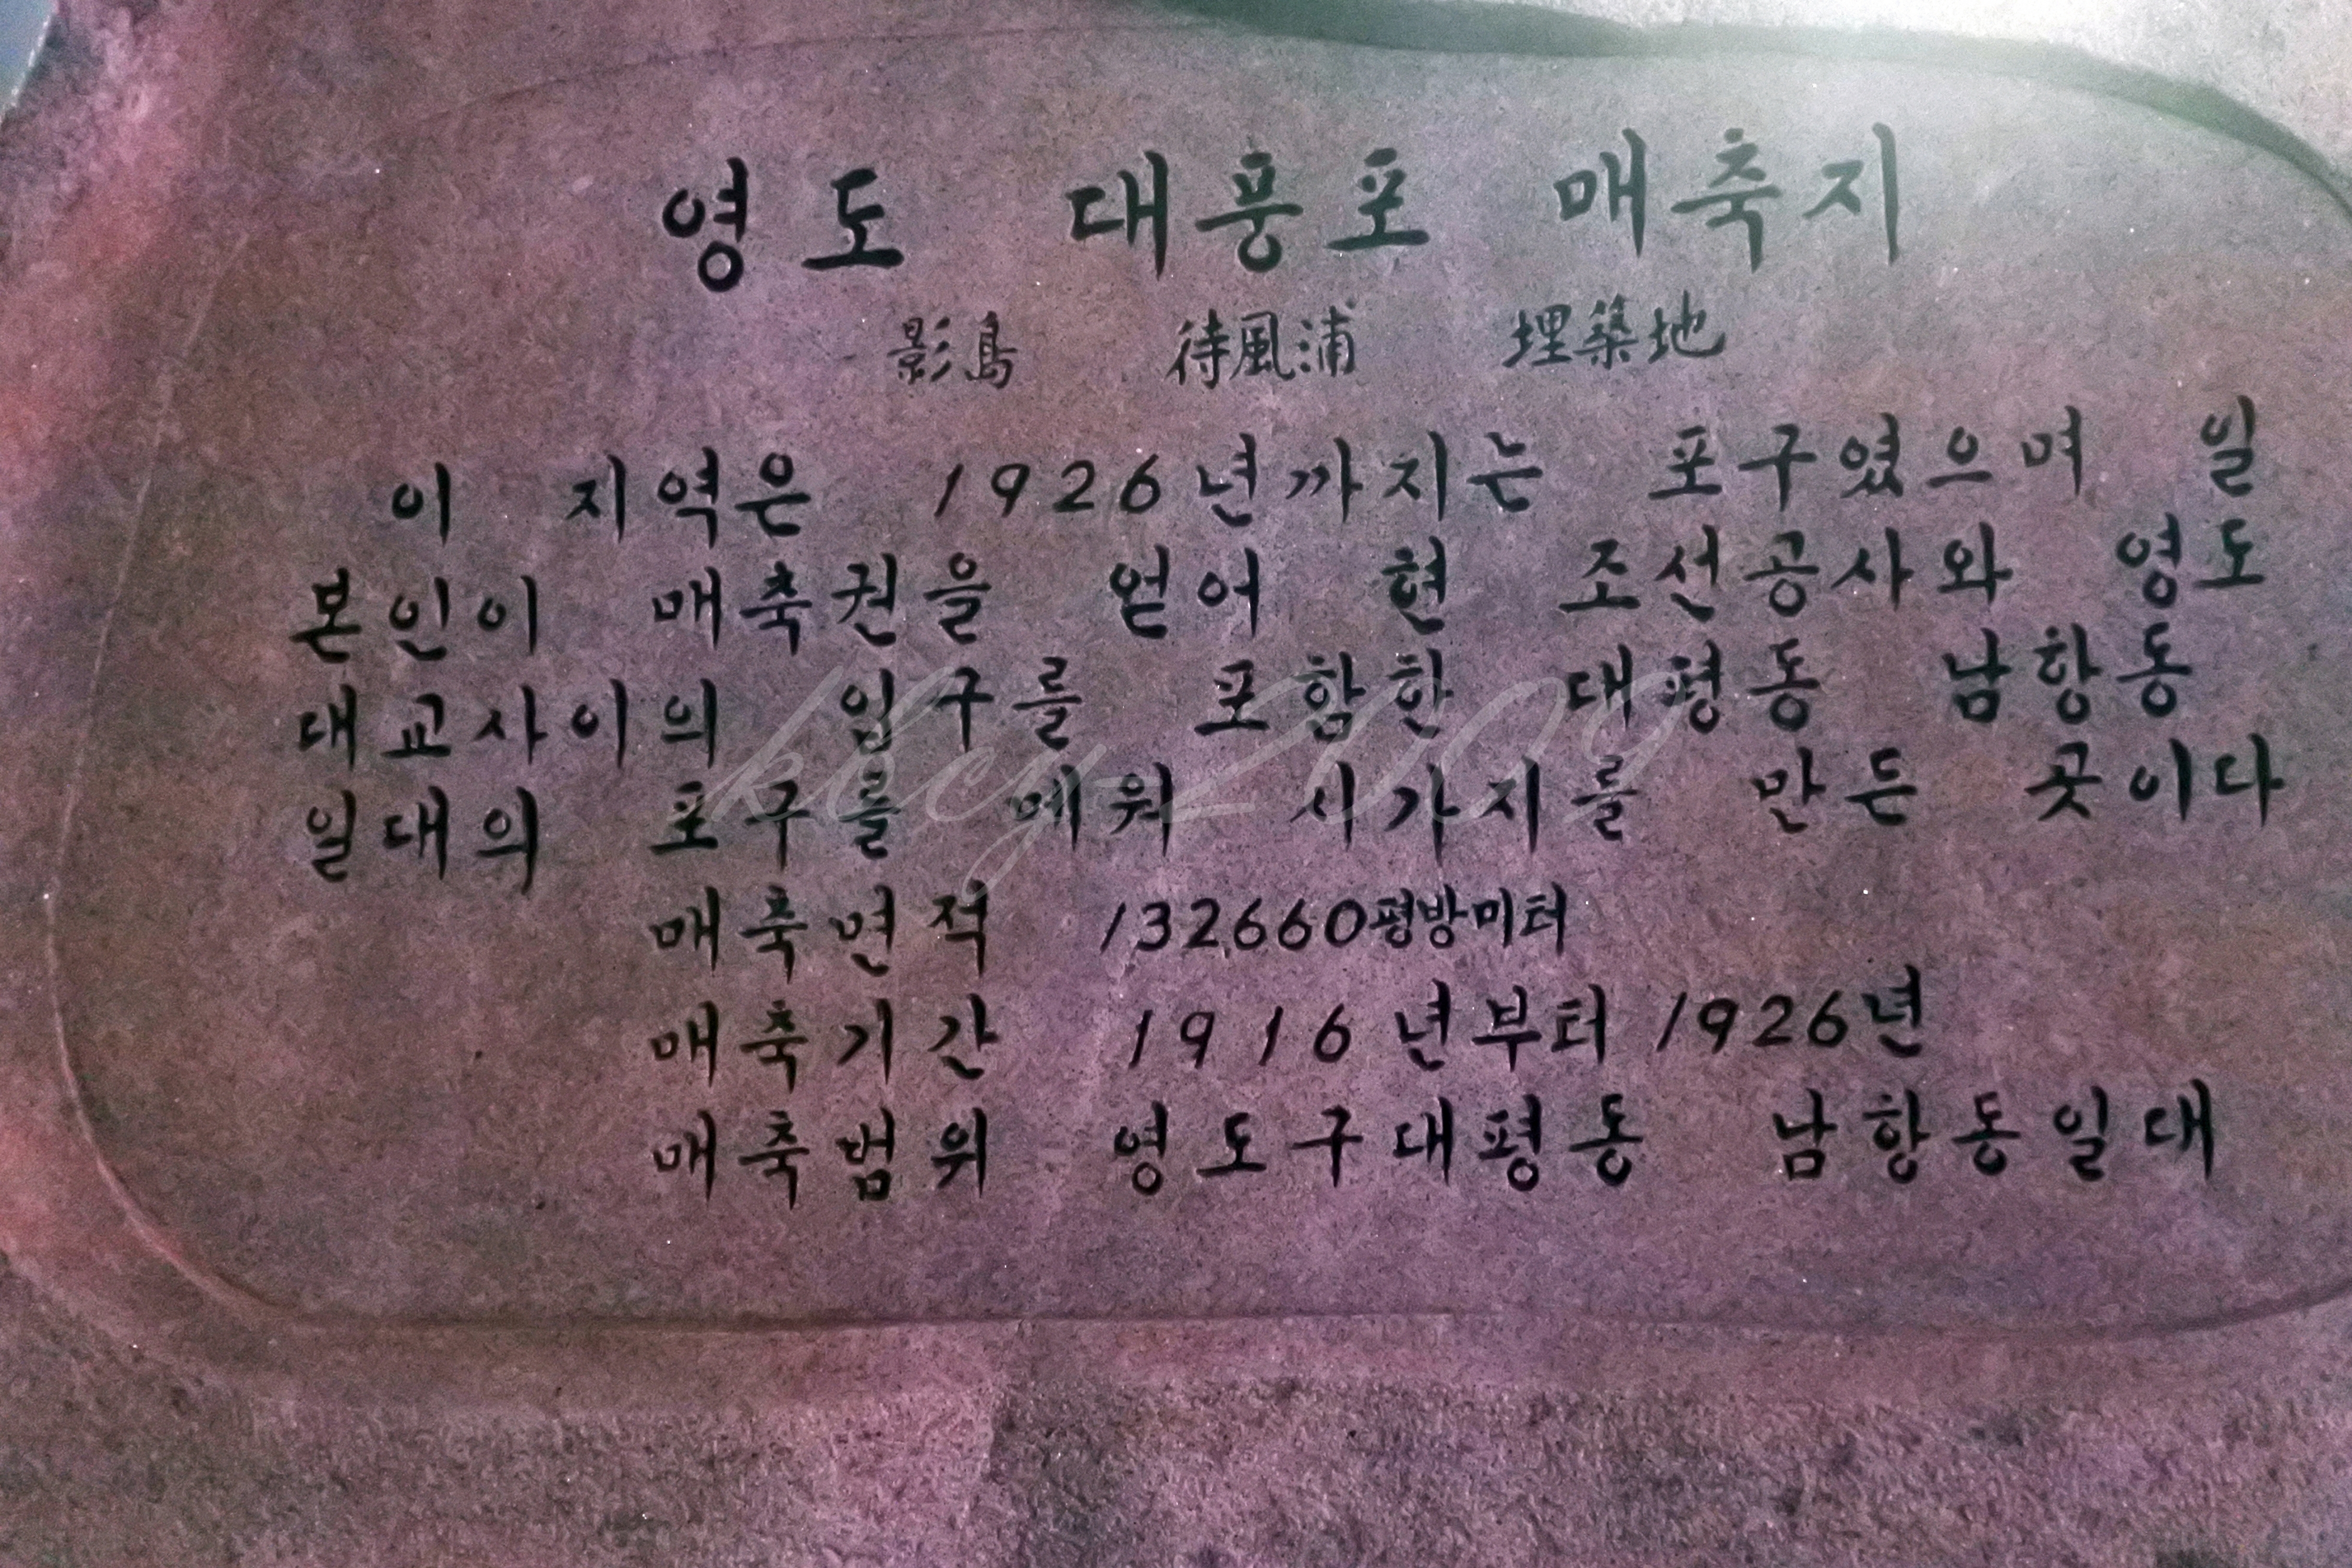 영도 대풍포 매축지
影島 待風浦 埋築地
이 지역은 1926년까지는 포구였으며 일
본인이 매축권을 얻어 현 조선공사와 영도
대교사이의 입구를 포함한 대평동 남항동
일대의 포구를 메워 시가지를 만든 곳이다
매축면적 132,660평방미터
매축기간 1916년부터 1926년
매축범위 영도구대평동 남항동일대
kbcy-2009